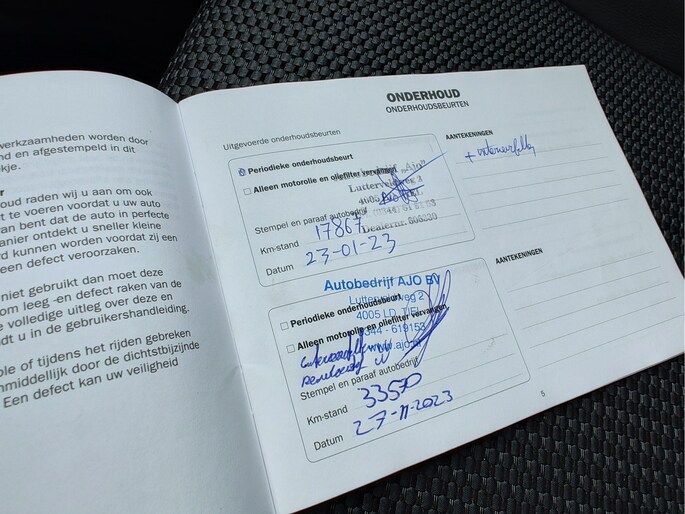 werkzaamheden worden door
nd en afgestempeld in dit
kje.
r
oud raden wij u aan om ook
t te voeren voordat u uw auto
an bent dat de auto in perfecte
anier ontdekt u sneller kleine
rd kunnen worden voordat zij een
een defect veroorzaken.
niet gebruikt dan moet deze
om leeg -en defect raken van de
e volledige uitleg over deze en
dt u in de gebruikershandleiding.
ole of tijdens het rijden gebreken
nmiddellijk door de dichtstbijzijnde
Een defect kan uw veiligheid
ONDERHOUD
ONDERHOUDSBEURTEN
Uitgevoerde onderhoudsbeurten
AANTEKENINGEN
Periodieke onderhoudsbeurt
Alleen motorolie en oliefilter vervangen
Autobedrijf „Ajo"
Lutterveldweg 2
4005 LD TIEL
Stempel en paraaf autobedrijf
Dealernr. 808230
Km-stand 17867
Datum 23-01-23
+ interieurfilter
AANTEKENINGEN
Autobedrijf AJO BV
Periodieke onderhoudsbeurt
Lutterveldweg 2
4005 LD TIEL
Alleen motorolie en oliefilter vervangen
0344 - 619153
www.ajo.nl
Stempel en paraaf autobedrijf
Km-stand 33570
Datum 27-11-2023
5